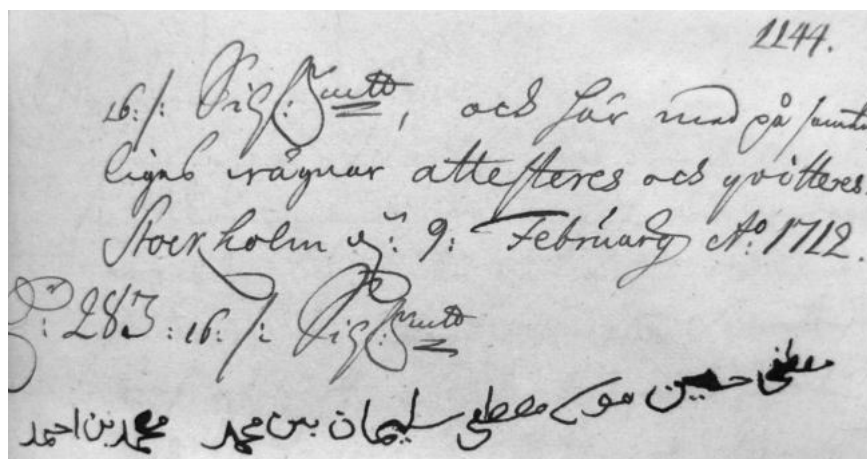 1144.
16:/: och här med på samtl
ligas wägnar attesteres och qvitteres.
Stockholm d: 9: February Aº 1712.
: 283:16:/:
مصطفى حسين مصطفى سليمان بن محمد محمد بن احمد